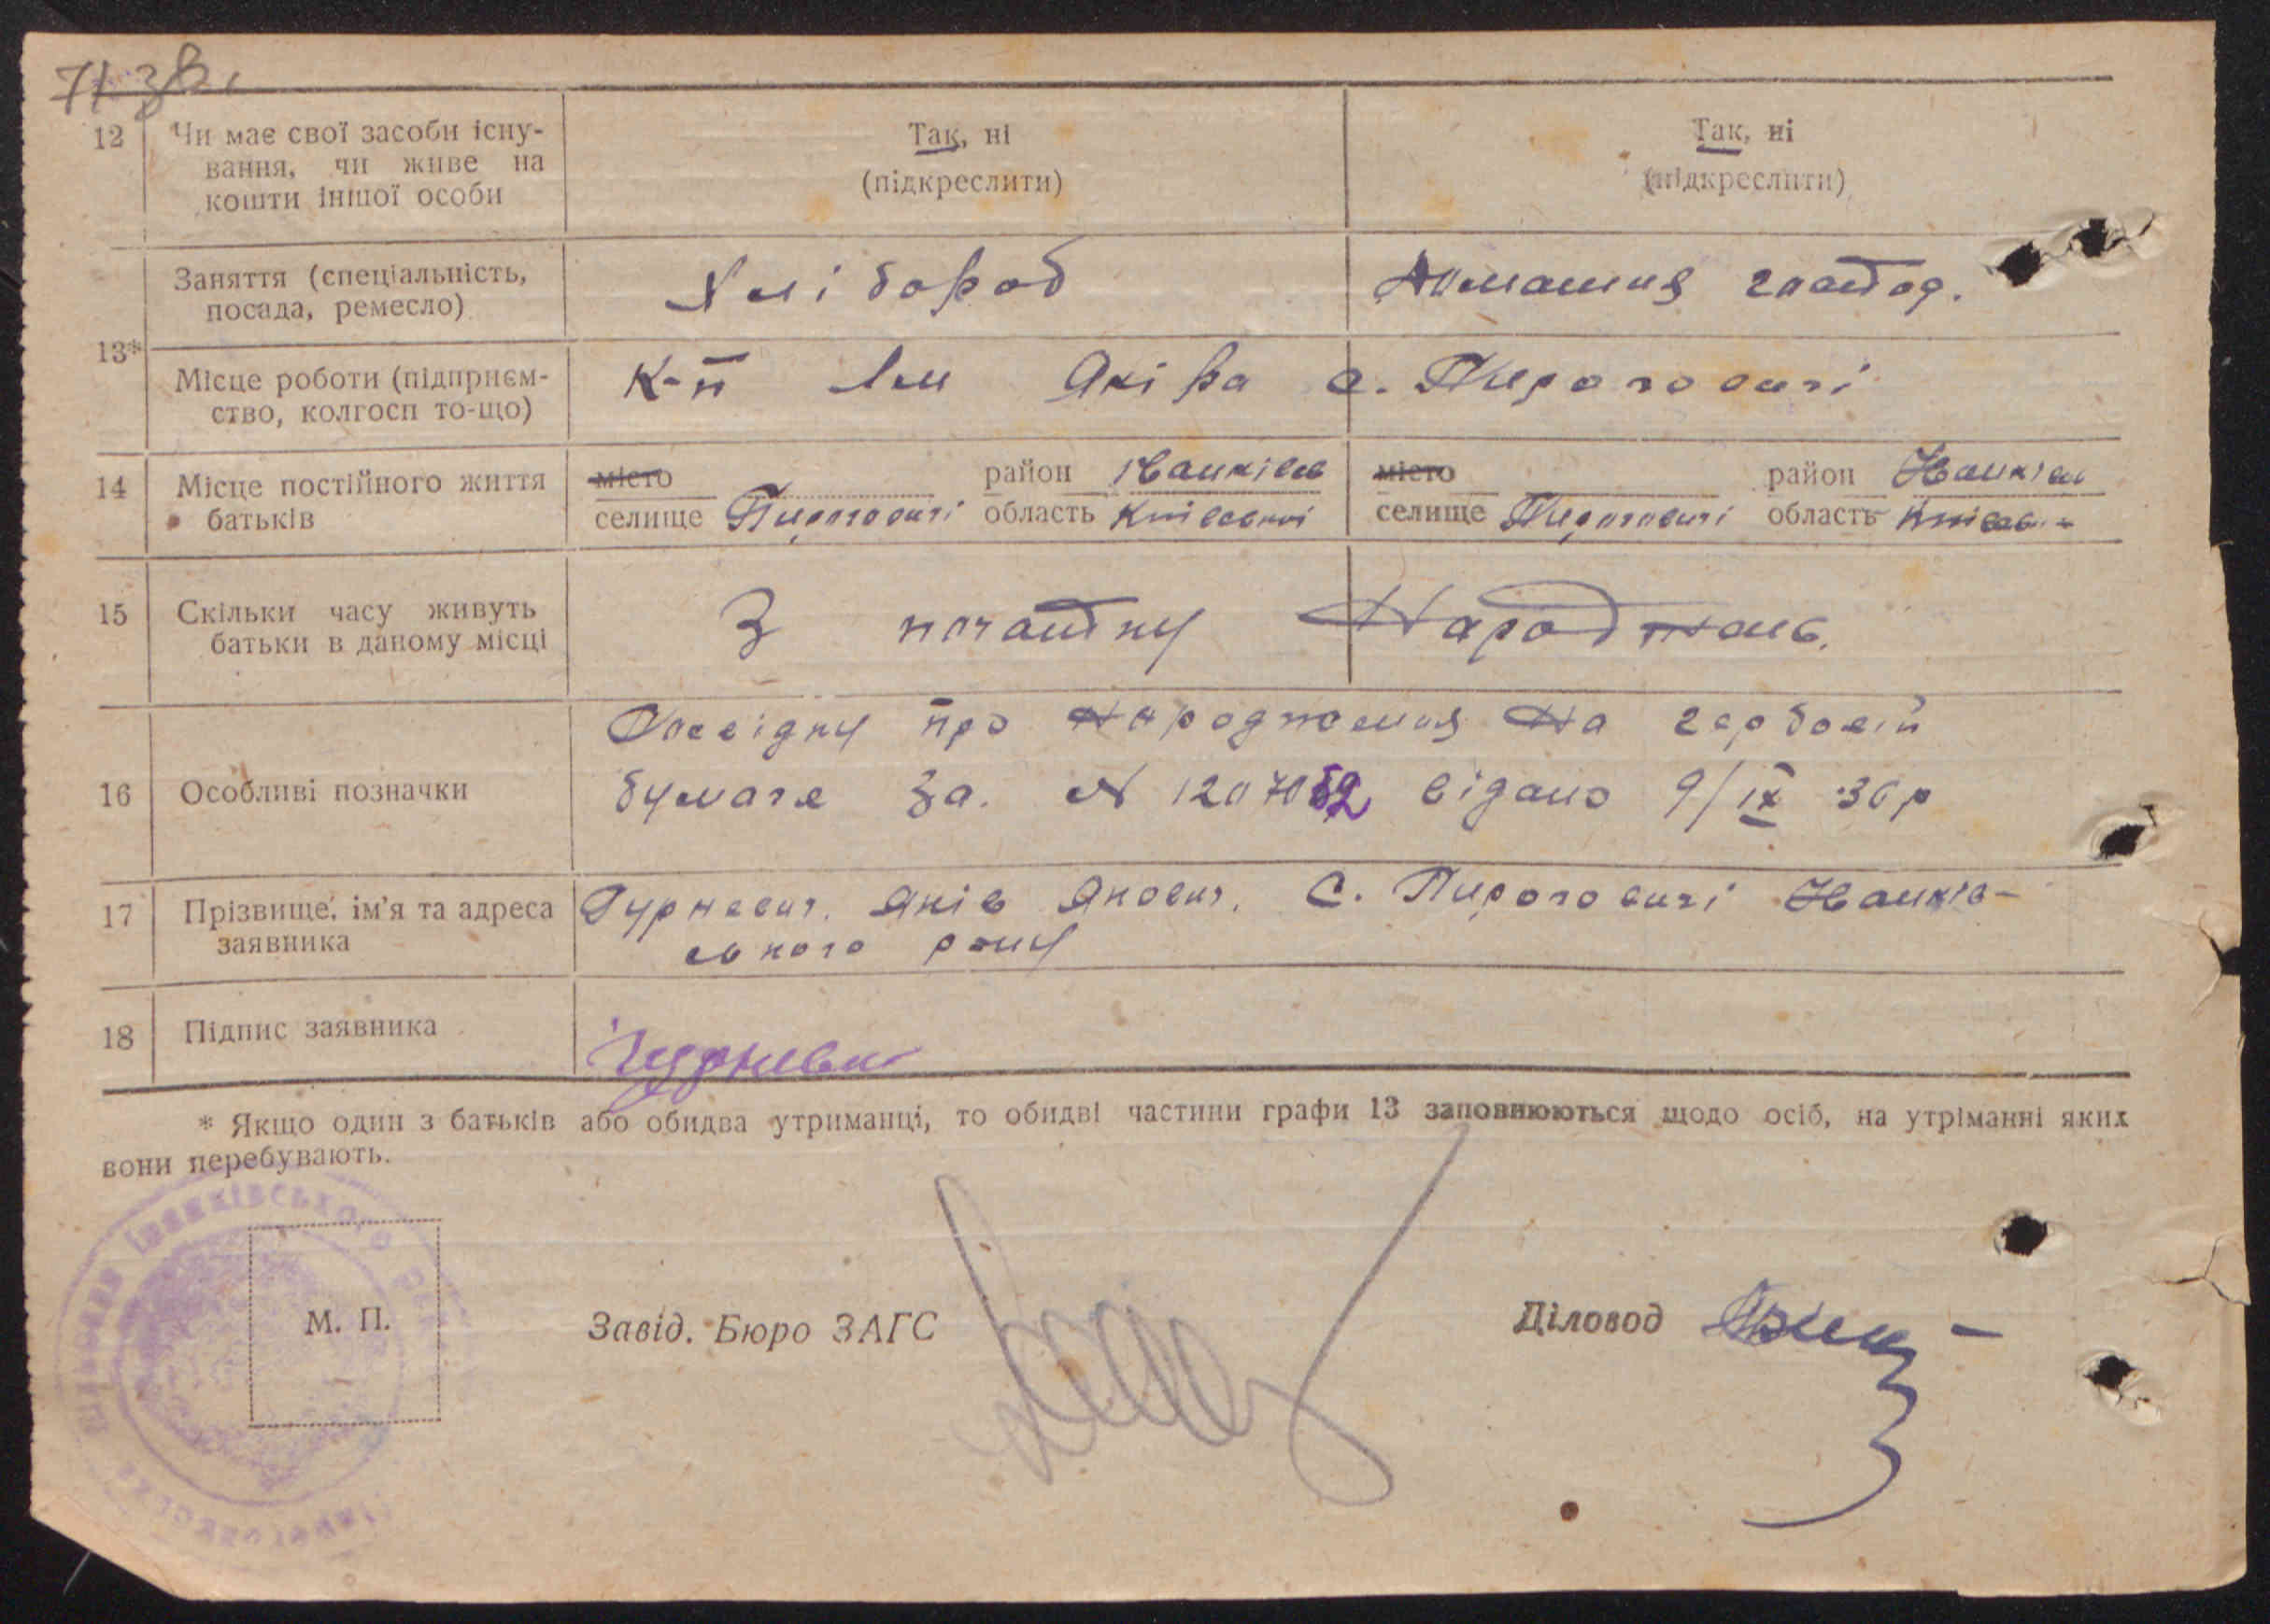 71 зв.
12 Чи має свої засоби існу- Так, ні Так, ні
вання, чи живе на (підкреслити) (підкреслити)
кошти іншої особи
Заняття (спеціальність, Хлібороб Домашня господ.
посада, ремесло)
13*
Місце роботи (підприєм- К-п Ім Якіра с. Пироговичі
ство, колгосп то-що)
14 Місце постійного життя місто район Іванків місто район Іванків
батьків селище Пироговичі область Київської селище Пироговичі область Київ
15 Скільки часу живуть З початку Народжень.
батьки в даному місці
Посвідку про народження на гербовій
16 Особливі позначки бумаге за. N 1207052 відано 9/IX 36 р
17 Прізвище, ім'я та адреса Гуржевич. Яків Якович. С. Пироговичі Іванків-
заявника ського р-ну
18 Підпис заявника Гуржевич
* Якщо один з батьків або обидва утриманці, то обидві частини графи 13 заповнюються щодо осіб, на утріманні яких
вони перебувають.
Іванківського
М. П. Завід. Бюро ЗАГС Діловод